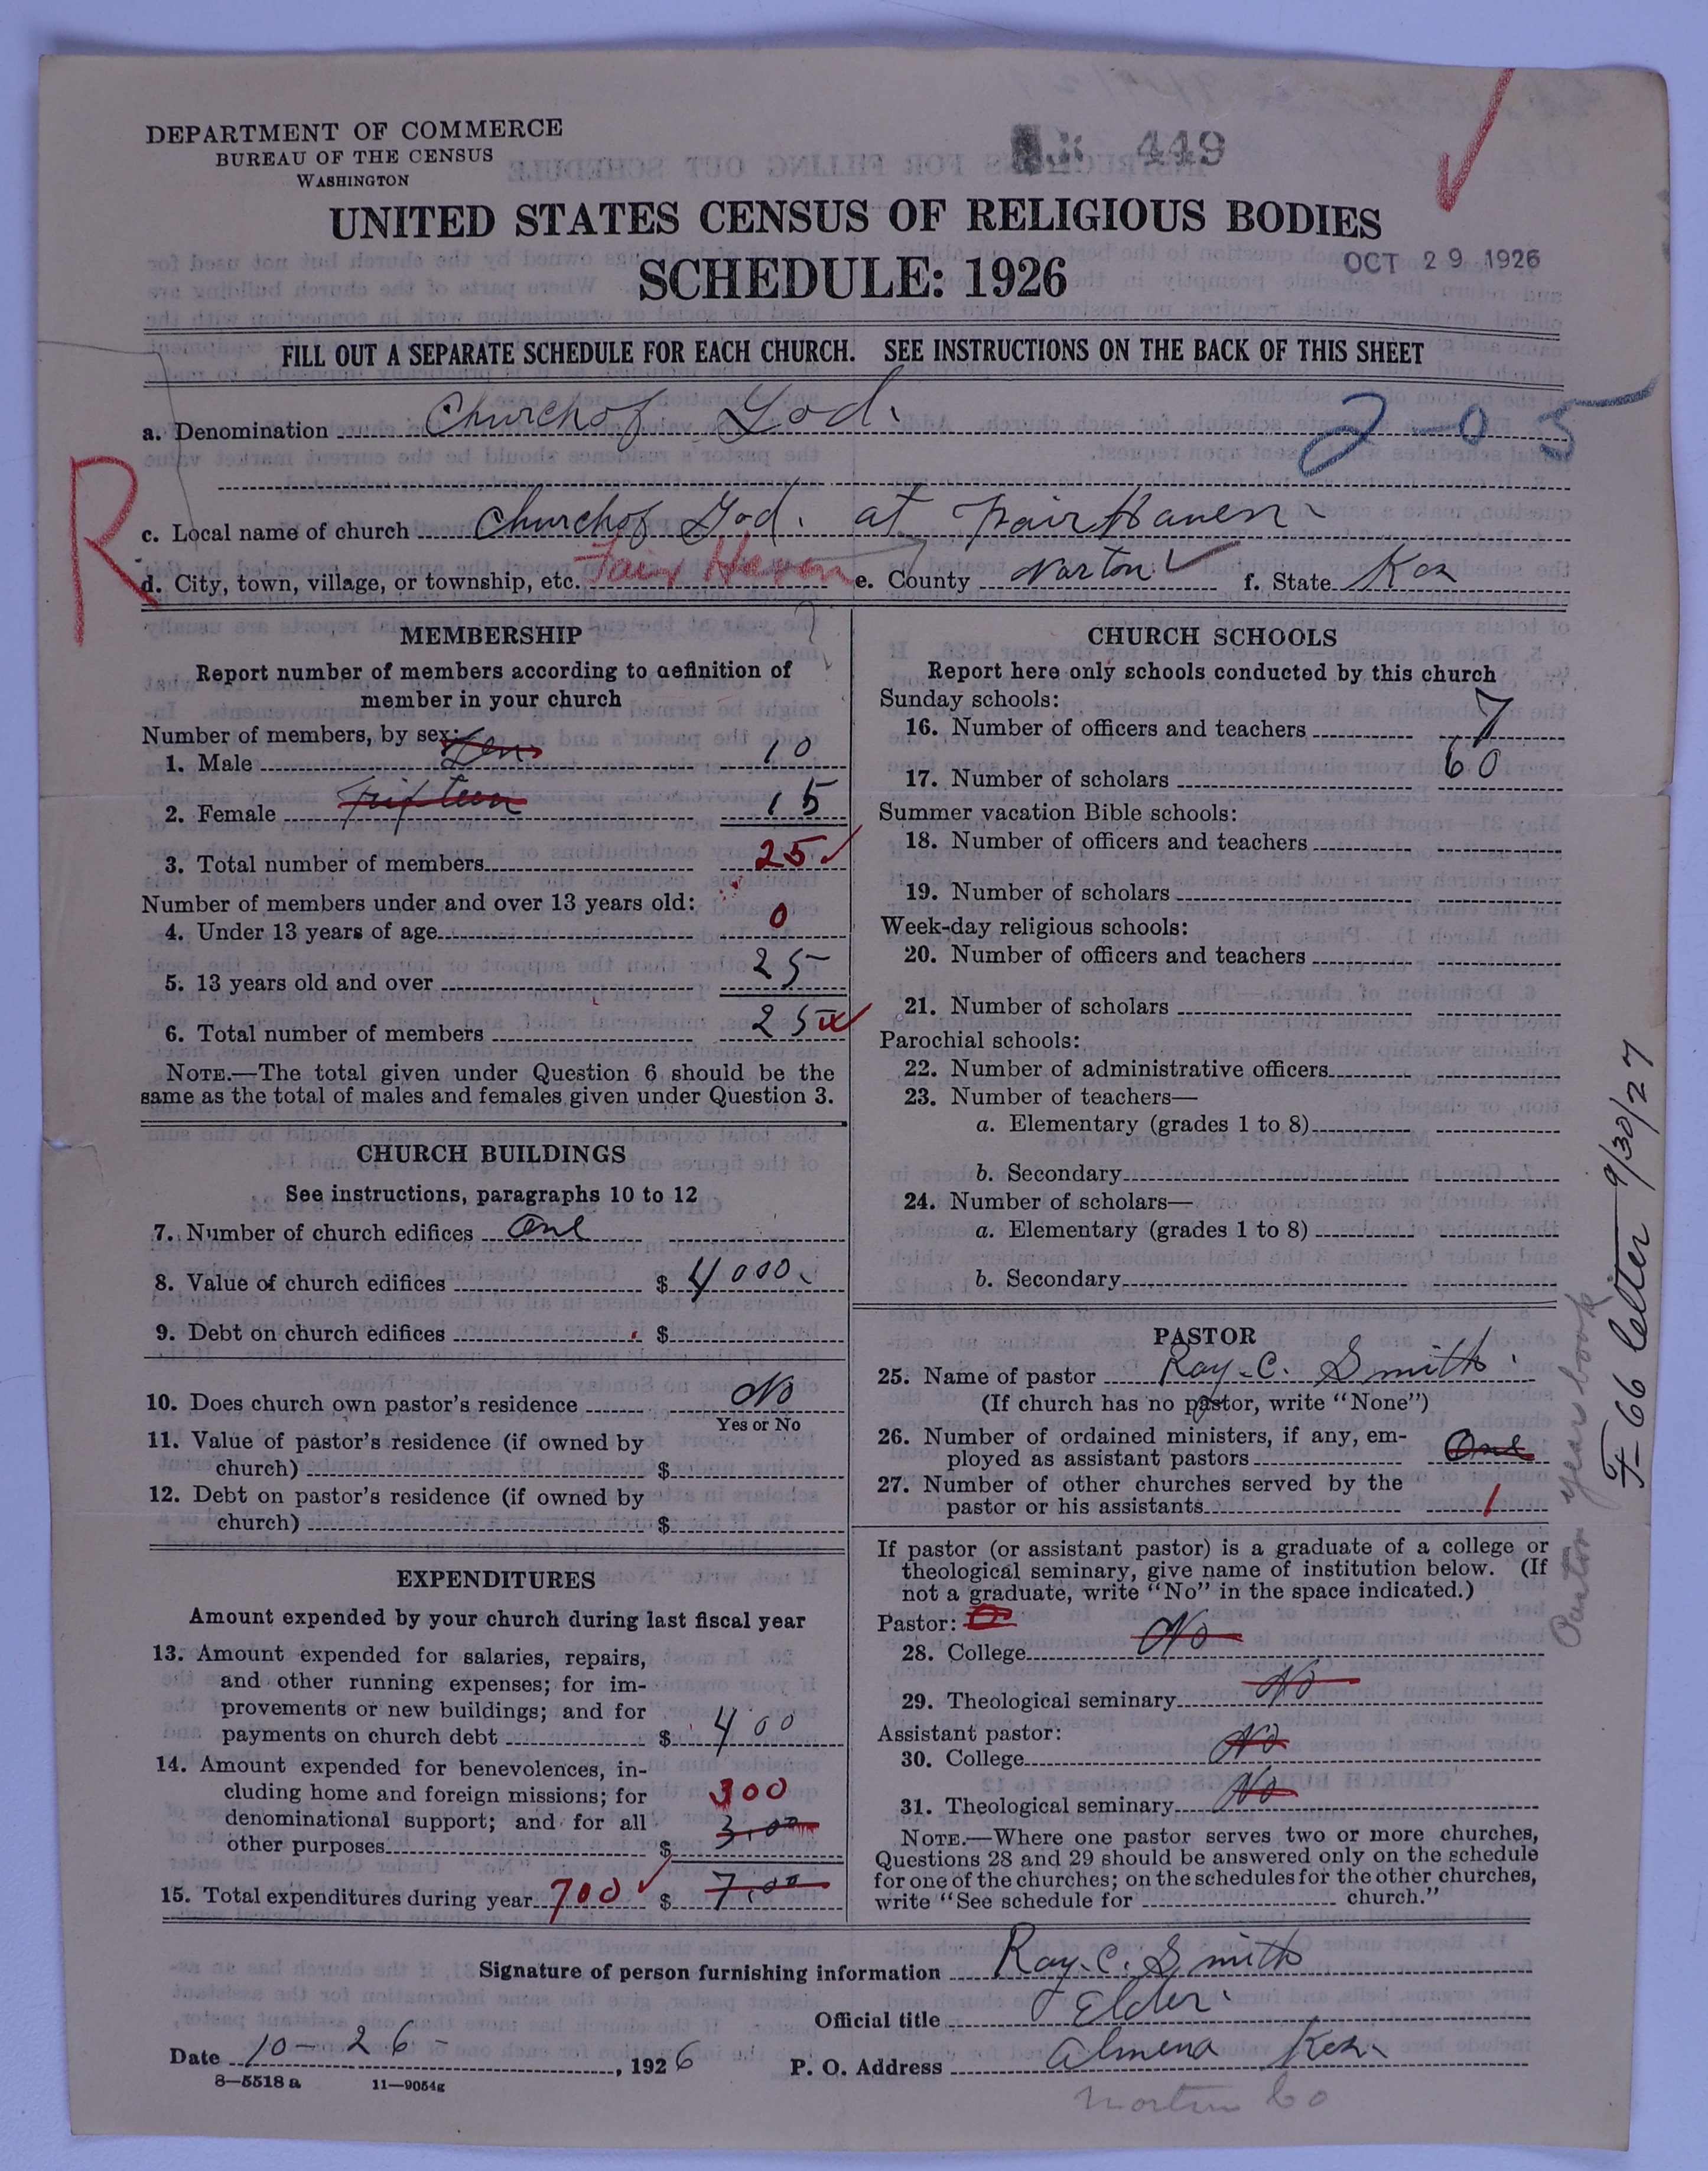 DEPARTMENT OF COMMERCE
BUREAU OF THE CENSUS
WASHINGTON
449
UNITED STATES CENSUS OF RELIGIOUS BODIES
SCHEDULE: 1926
OCT 29 1926
FILL OUT A SEPARATE SCHEDULE FOR EACH CHURCH. SEE INSTRUCTIONS ON THE BACK OF THIS SHEET
a. Denomination Church of God.
2-05
c. Local name of church Church of God. at Fair Haven
R
d. City, town, village, or township, etc. Fair Haven e. County Norton f. State Kan
MEMBERSHIP
Report number of members according to definition of
member in your church
Number of members, by sex:
1. Male Ten 10
2. Female Fifteen 15
3. Total number of members 25
Number of members under and over 13 years old:
4. Under 13 years of age 0
5. 13 years old and over 25
6. Total number of members 25
NOTE.—The total given under Question 6 should be the
same as the total of males and females given under Question 3.
CHURCH BUILDINGS
See instructions, paragraphs 10 to 12
7. Number of church edifices One
8. Value of church edifices $ 4000.
9. Debt on church edifices $
10. Does church own pastor's residence No
Yes or No
11. Value of pastor's residence (if owned by
church) $
12. Debt on pastor's residence (if owned by
church) $
EXPENDITURES
Amount expended by your church during last fiscal year
13. Amount expended for salaries, repairs,
and other running expenses; for im-
provements or new buildings; and for
payments on church debt $ 400
14. Amount expended for benevolences, in-
cluding home and foreign missions; for 300
denominational support; and for all 3.00
other purposes $
15. Total expenditures during year 700 $ 7.00
CHURCH SCHOOLS
Report here only schools conducted by this church
Sunday schools:
16. Number of officers and teachers 7
17. Number of scholars 60
Summer vacation Bible schools:
18. Number of officers and teachers
19. Number of scholars
Week-day religious schools:
20. Number of officers and teachers
21. Number of scholars
Parochial schools:
22. Number of administrative officers
23. Number of teachers—
a. Elementary (grades 1 to 8)
b. Secondary
24. Number of scholars—
a. Elementary (grades 1 to 8)
b. Secondary
PASTOR
25. Name of pastor Ray. C. Smith.
(If church has no pastor, write "None")
26. Number of ordained ministers, if any, em-
ployed as assistant pastors One
27. Number of other churches served by the
pastor or his assistants 1
If pastor (or assistant pastor) is a graduate of a college or
theological seminary, give name of institution below. (If
not a graduate, write "No" in the space indicated.)
Pastor:
28. College No
29. Theological seminary No
Assistant pastor:
30. College No
31. Theological seminary No
NOTE.—Where one pastor serves two or more churches,
Questions 28 and 29 should be answered only on the schedule
for one of the churches; on the schedules for the other churches,
write "See schedule for church."
Pastor year book
F-66 letter 9/30/27
Signature of person furnishing information Ray. C. Smith
Official title Elder.
Date 10-26- , 1926 P. O. Address Almena Kan.
8—5518 a 11—9054g
Norton Co